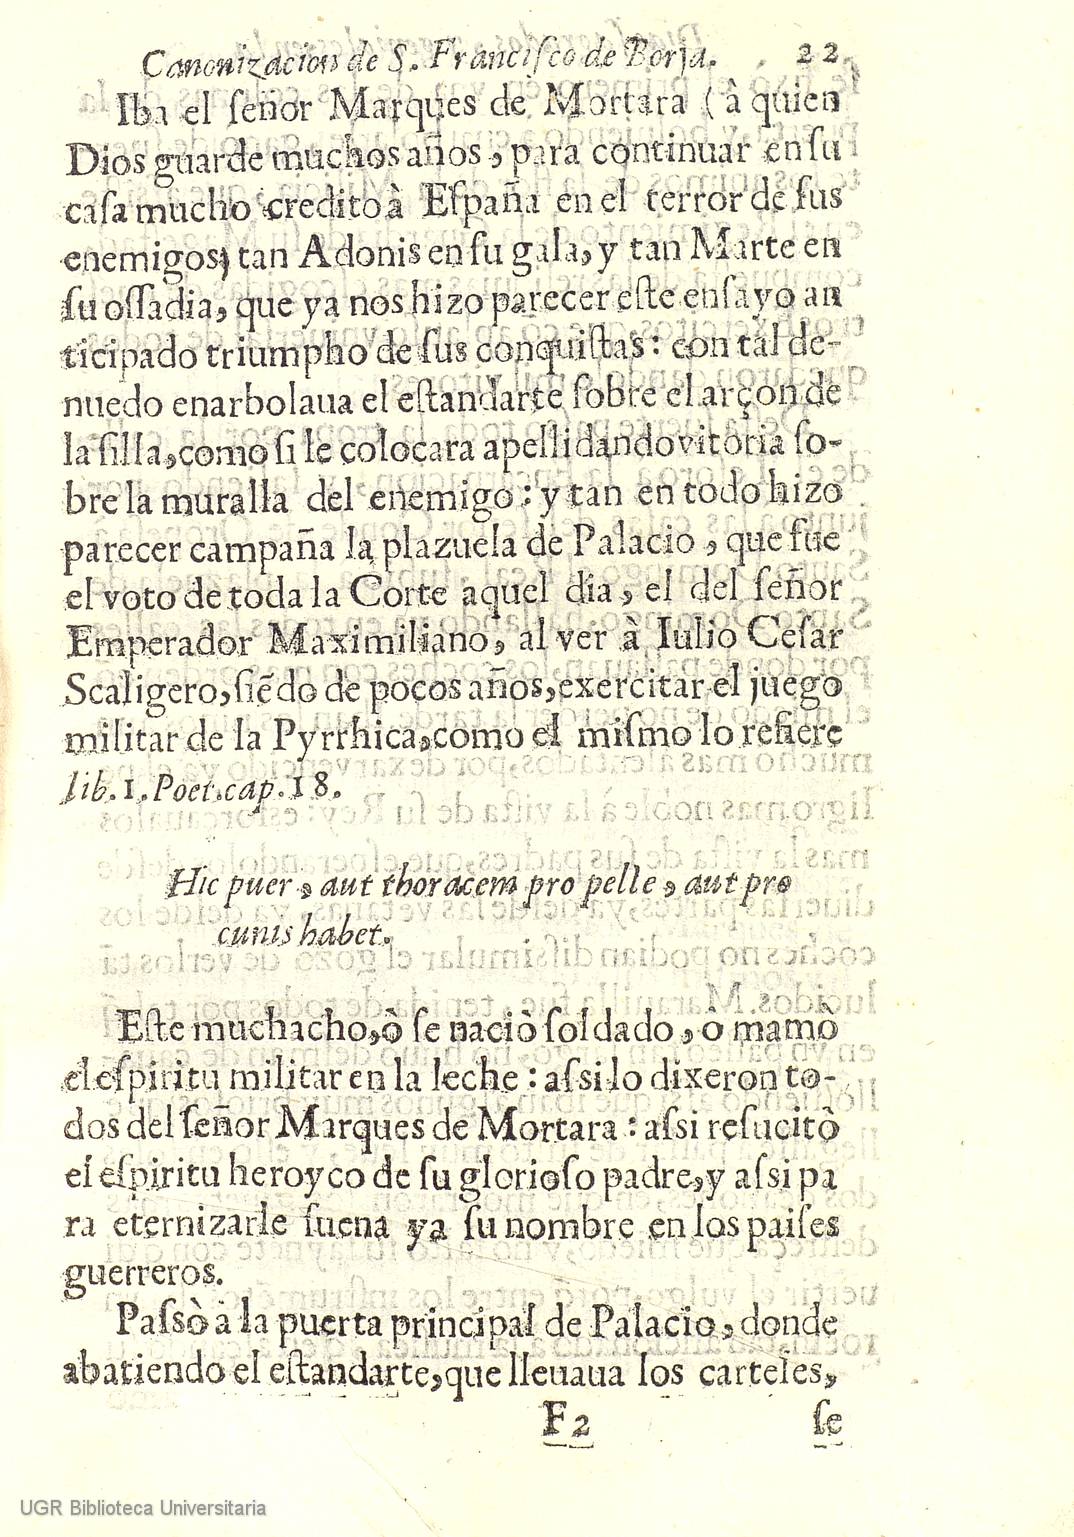 Canonizacion de S. Franciſco de Borja. 22
Iba el ſeñor Marques de Mortara (à quien
Dios guarde muchos años, para continuar en ſu
caſa mucho credito à Eſpaña en el terror de ſus
enemigos) tan Adonis en ſu gala, y tan Marte en
ſu oſſadia, que ya nos hizo parecer eſte enſayo an
ticipado triumpho de ſus conquiſtas: con tal de-
nuedo enarbolaua el eſtandarte ſobre el arçon de
la ſilla, como ſi le colocara apellidando vitoria ſo-
bre la muralla del enemigo: y tan en todo hizo
parecer campaña la plazuela de Palacio, que fue
el voto de toda la Corte aquel dia, el del ſeñor
Emperador Maximiliano, al ver à Iulio Ceſar
Scaligero, ſiẽdo de pocos años, exercitar el juego
militar de la Pyrrhica, como el miſmo lo refiere
lib. 1. Poet. cap. 18.
Hic puer, aut thoracem pro pelle, aut pro
cunis habet.
Eſte muchacho, ò ſe naciò ſoldado, ò mamò
el eſpiritu militar en la leche: aſsi lo dixeron to-
dos del ſeñor Marques de Mortara: aſsi reſucitò
el eſpiritu heroyco de ſu glorioſo padre, y aſsi pa
ra eternizarle ſuena ya ſu nombre en los paiſes
guerreros.
Paſsò à la puerta principal de Palacio, donde
abatiendo el eſtandarte, que lleuaua los carteles,
F2 ſe
UGR Biblioteca Universitaria